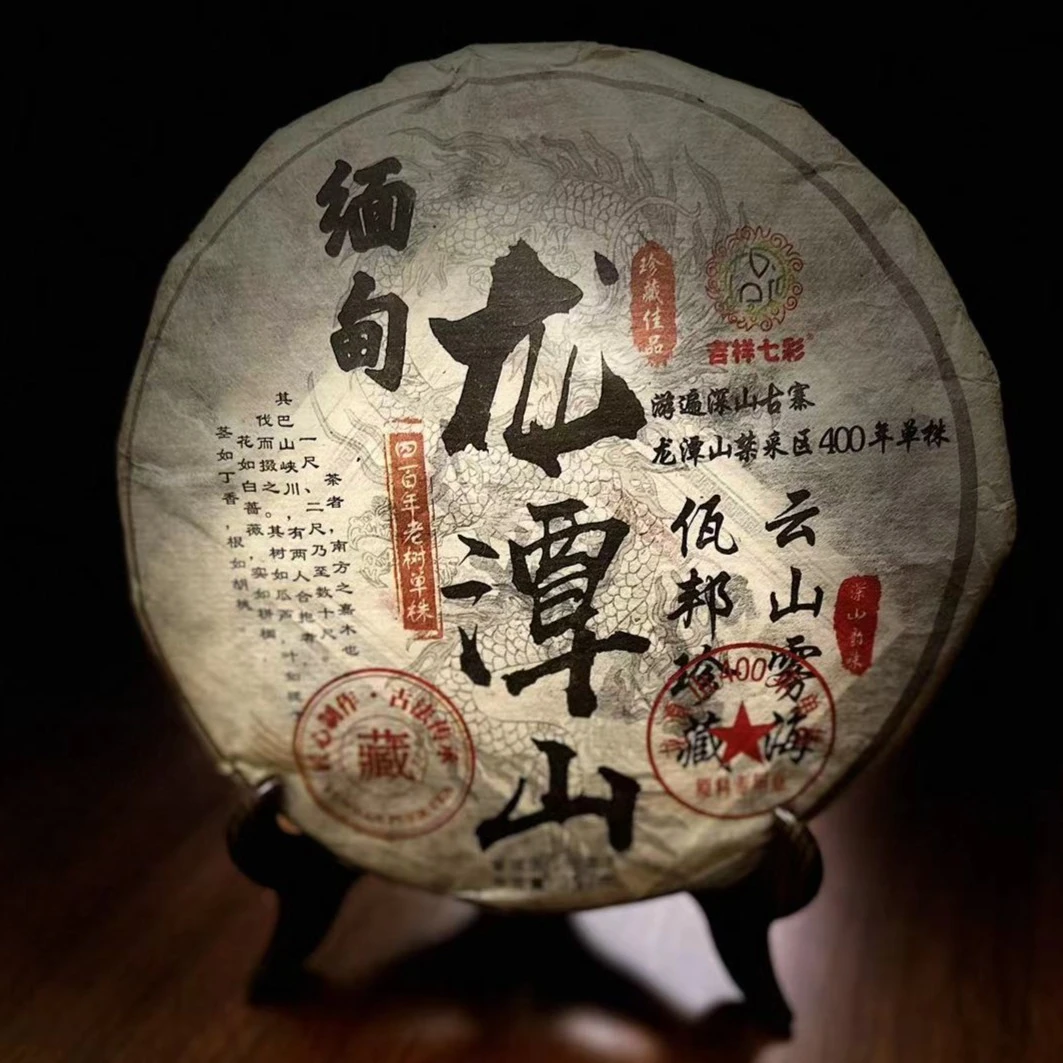 缅甸
龙潭山
珍藏佳品
吉祥七彩
游遍深山古寨
龙潭山禁采区400年单株
云山雾海
佤邦珍藏
深山韵味
四百年老树单株
茶者,南方之嘉木也
一尺、二尺乃至数十尺。
其巴山峡川,有两人合抱者,
伐而掇之。其树如瓜 叶如
花如白蔷薇,实如栟榈,
茎如丁香,根如胡桃
匠心制作·古法传承
藏
400